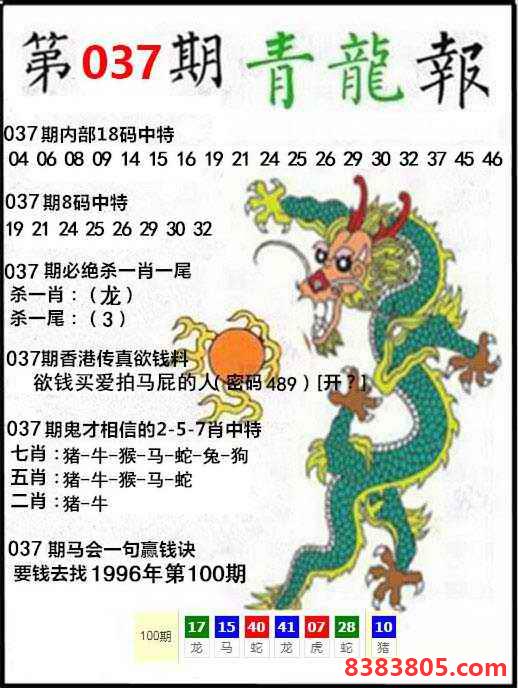 第037期 青龍報
037期内部18码中特
04 06 08 09 14 15 16 19 21 24 25 26 29 30 32 37 45 46
037期8码中特
19 21 24 25 26 29 30 32
037期必绝杀一肖一尾
杀一肖：（龙）
杀一尾：（3）
037期香港传真欲钱料
欲钱买爱拍马屁的人（密码489）[开？]
037期鬼才相信的2-5-7肖中特
七肖：猪-牛-猴-马-蛇-兔-狗
五肖：猪-牛-猴-马-蛇
二肖：猪-牛
037期马会一句赢钱诀
要钱去找1996年第100期
100期 17 15 40 41 07 28 10
龙 马 蛇 龙 虎 蛇 猪
8383805.com